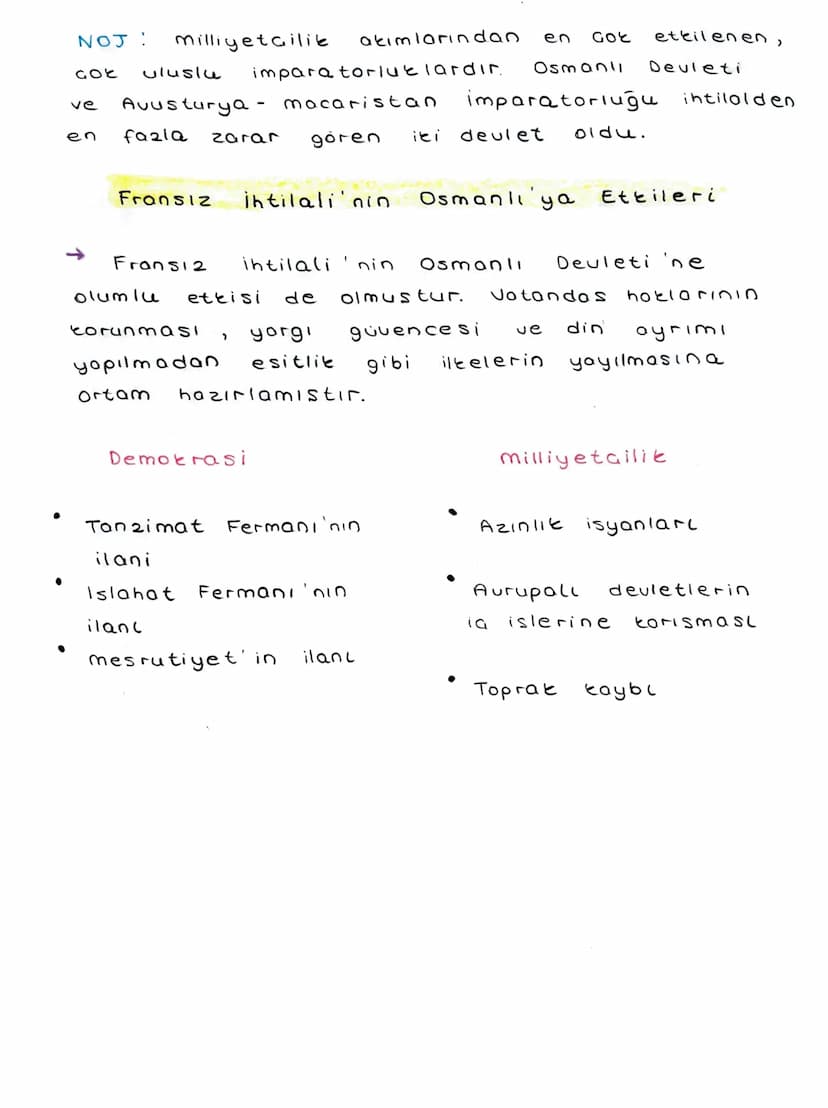 NOT : Milliyetcilik akımlarından en cok etkilenen,
cok uluslu imparatorluklardır. Osmanlı Devleti
ve Avusturya - macaristan imparatorluğu ihtilalden
en fazla zarar gören iki devlet oldu.
Fransız İhtilali'nin Osmanlı'ya Etkileri
→ Fransız ihtilali'nin Osmanlı Devleti'ne
olumlu etkisi de olmustur. Vatandas haklarının
korunması, yargı güvencesi ve din ayrımı
yapılmadan esitlik gibi ilkelerin yayılmasına
ortam hazırlamıstır.
Demokrasi
• Tanzimat Fermanı'nın
ilani
• Islahat Fermanı'nın
ilanı
• mesrutiyet'in ilanı
Milliyetcilik
• Azınlık isyanları
• Avrupalı devletlerin
ic islerine karısması
• Toprak kaybı